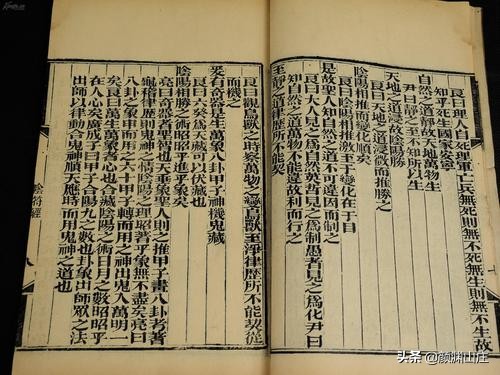 良曰理人自死理軍亡兵無死則無不死無生則無不生故
知乎死生國家安寧
自然之道靜故天地萬物生
尹曰至靜之至不知所以生
天地之道浸故陰陽勝
良曰天地之道浸微而推勝之
陰陽相推而變化順矣
良曰陰陽相推激至于變化在于目
是故聖人知自然之道不可違因而制之
良曰大人見之為自然英哲見之為制愚者見之為化尹曰
知自然之道萬物不能違故利而行之
至靜之道律歷所不能契
良曰觀鳥獸之時察萬物之變鳥獸至淨律歷所不能契從
而機之
爰有奇器是生萬象八卦甲子神機鬼藏
良曰六癸為天藏可以伏藏也
陰陽相勝之術昭昭乎進乎象矣
亮曰奇器者聖智也天垂象聖人則之推甲子畫八卦考蓍
龜稽律歷則鬼神之情陰陽之理昭著乎象無不盡矣亮曰
八卦之象申而用之六十甲子轉而用之神出鬼入萬明一
矣良曰萬生萬象者心也合藏陰陽之術日月之數昭昭乎
在人心矣廣成子曰甲子合陽九之數也卦象出師眾之法
出師以律動合鬼神順天應時而用鬼神之道也
陰符經
头条 @颜渊山庄